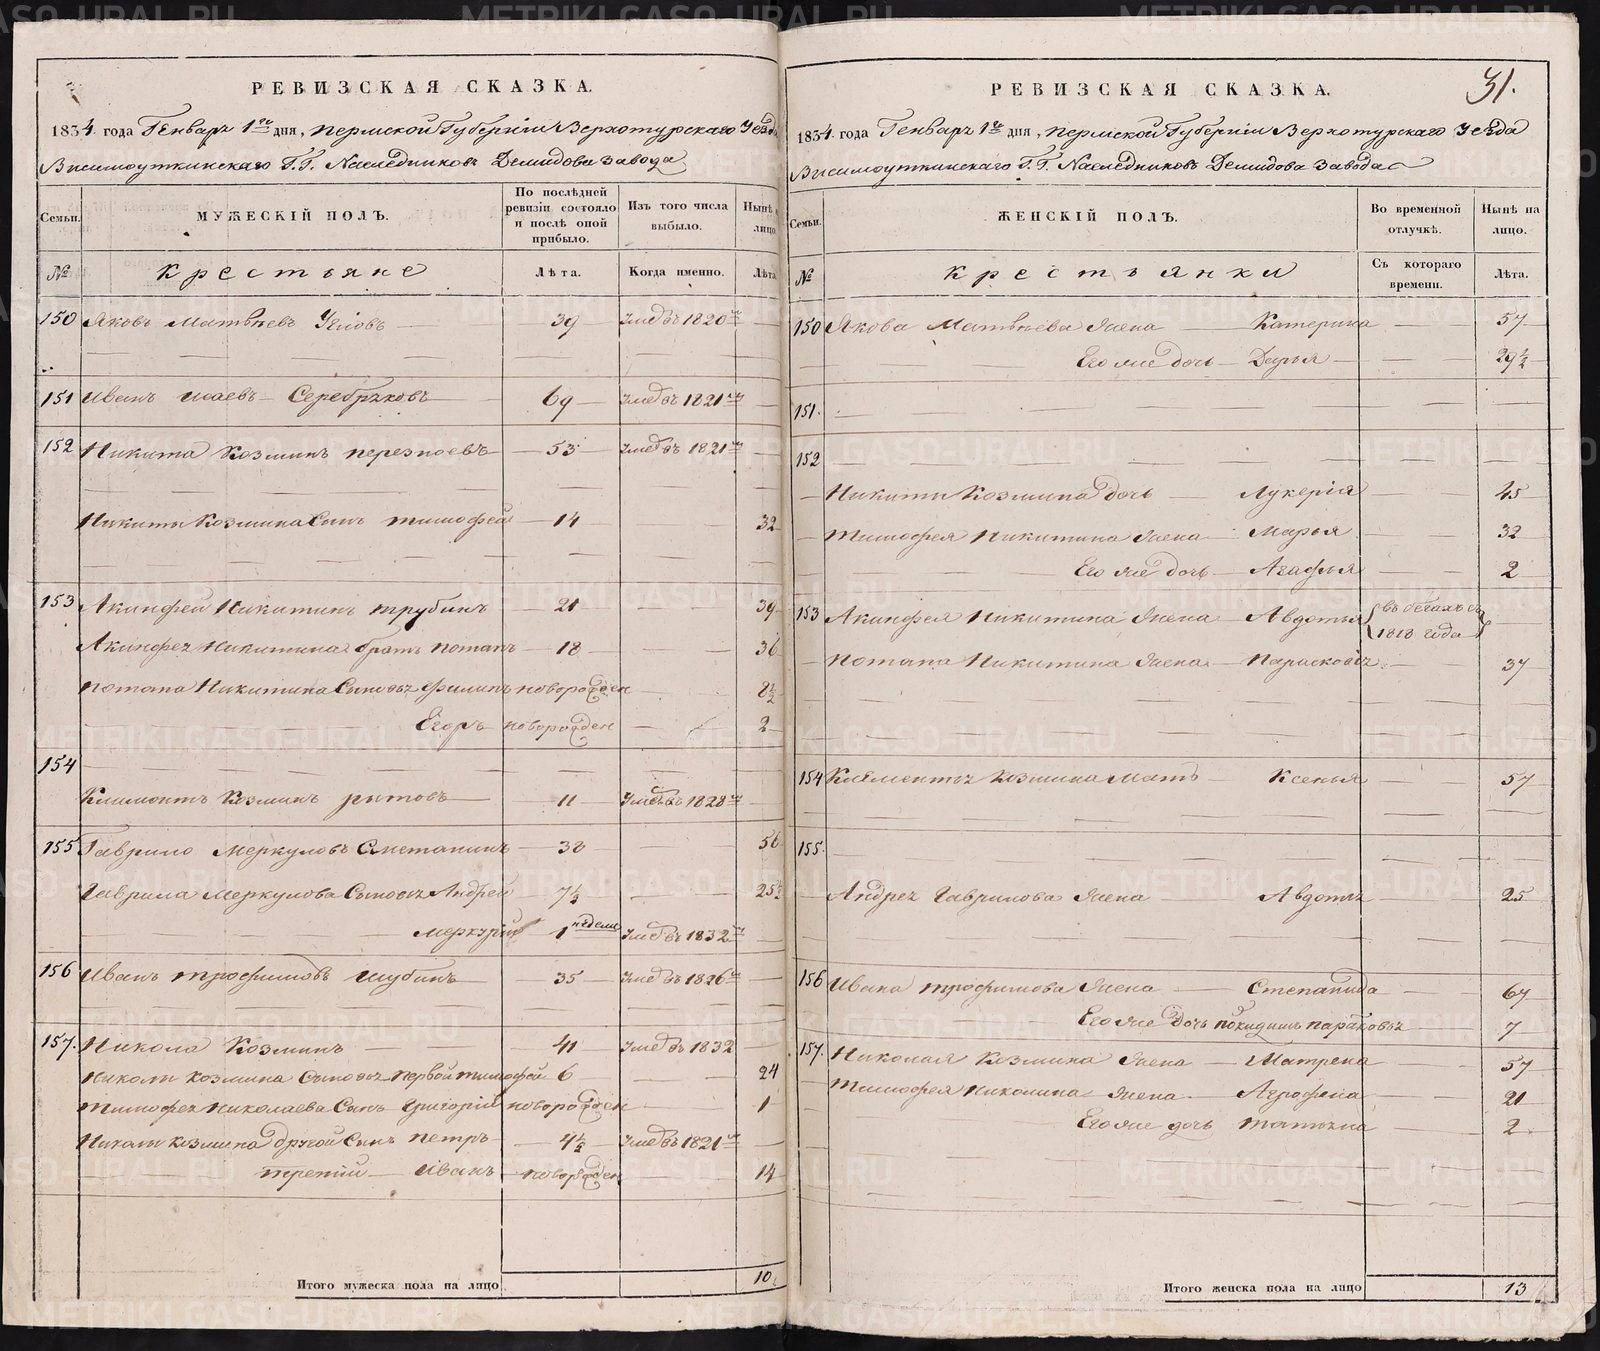 РЕВИЗСКАЯ СКАЗКА.
1834. года Генваря 1го дня, Пермской Губерніи Верхотурскаго Уезда
Висимоуткинскаго Г.Г. Наследниковъ Демидова завода
Семьи.
МУЖЕСКІЙ ПОЛЪ.
По послѣдней ревизіи состояло и послѣ оной прибыло.
Изъ того числа выбыло.
Нынѣ лицо.
№
Крестьяне
Лѣта.
Когда именно.
Лѣта
150 Яковъ Матвѣевъ 39 Умеръ въ 1820мъ
151 Иванъ Исаевъ Серебряковъ 69 Умеръ въ 1821мъ
152 Никита Козминъ 53 Умеръ въ 1821мъ
Никиты Козмина Сынъ Тимофей 14 32
153 Акинфей Никитинъ Трубинъ 21 39
Акинфея Никитина братъ Потапъ 18 36
Потапа Никитина Сыновья Филипъ новорожден 8½
Егоръ новорожден 2
154
Климонтъ Козминъ Рытовъ 11 Умеръ въ 1828мъ
155 Гаврило Меркуловъ Сметанинъ 38 56
Гаврила Меркулова Сыновья Андрей 7½ 25½
Меркурий 1 недели Умеръ въ 1832мъ
156 Иванъ Трофимовъ Шубинъ 35 Умеръ въ 1826мъ
157. Никола Козминъ 41 Умеръ въ 1832
Николы Козмина Сыновья Первой Тимофей 6 24
Тимофея Николаева Сынъ Григорий новорожден 1
Николы Козмина другой Сынъ Петръ 4½ Умеръ въ 1821мъ
третий Иванъ новорожден 14
Итого мужеска пола на лицо 10
31.
РЕВИЗСКАЯ СКАЗКА.
1834. года Генваря 1го дня, Пермской Губерніи Верхотурскаго Уезда
Висимоуткинскаго Г.Г. Наследниковъ Демидова завода
Семьи.
ЖЕНСКІЙ ПОЛЪ.
Во временной отлучкѣ.
Нынѣ на лицо.
№
Крестьянки
Съ котораго времени.
Лѣта.
150 Якова Матвѣева Жена Катерина 57
Его же дочь Дарья 29½
151.
152
Никиты Козмина дочь Лукерія 45
Тимофея Никитина Жена Марья 32
Его же дочь Агафья 2
153 Акинфея Никитина Жена Авдотья въ бегахъ съ 1818 года
Потапа Никитина Жена Парасковья 37
154 Климонтья Козмина Мать Ксенья 57
155.
Андрея Гаврилова Жена Авдотья 25
156 Ивана Трофимова Жена Степанида 67
Его же дочь Парасковья 7
157. Николая Козмина Жена Матрена 57
Тимофея Николина Жена Аграфена 21
Его же дочь Татьяна 2
Итого женска пола на лицо 13
METRIKI.GASO-URAL.RU